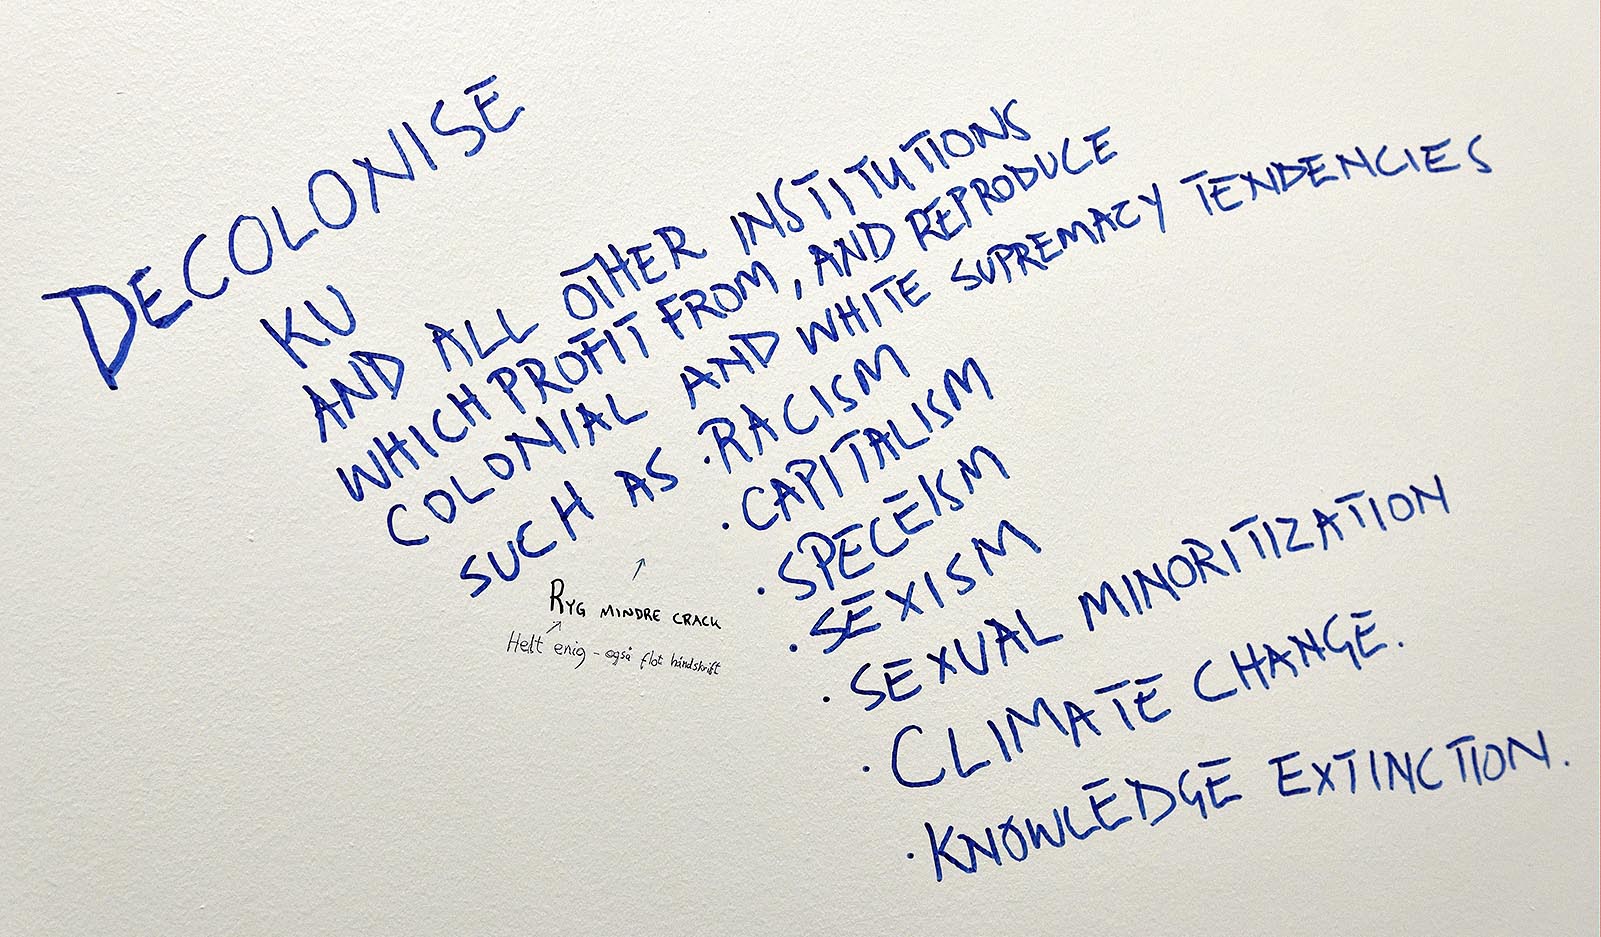 DECOLONISE
KU
AND ALL OTHER INSTITUTIONS
WHICH PROFIT FROM, AND REPRODUCE
COLONIAL AND WHITE SUPREMACY TENDENCIES
SUCH AS · RACISM
· CAPITALISM
· SPECEISM
· SEXISM
· SEXUAL MINORITIZATION
· CLIMATE CHANGE.
· KNOWLEDGE EXTINCTION.
RYG MINDRE CRACK
Helt enig - også flot håndskrift